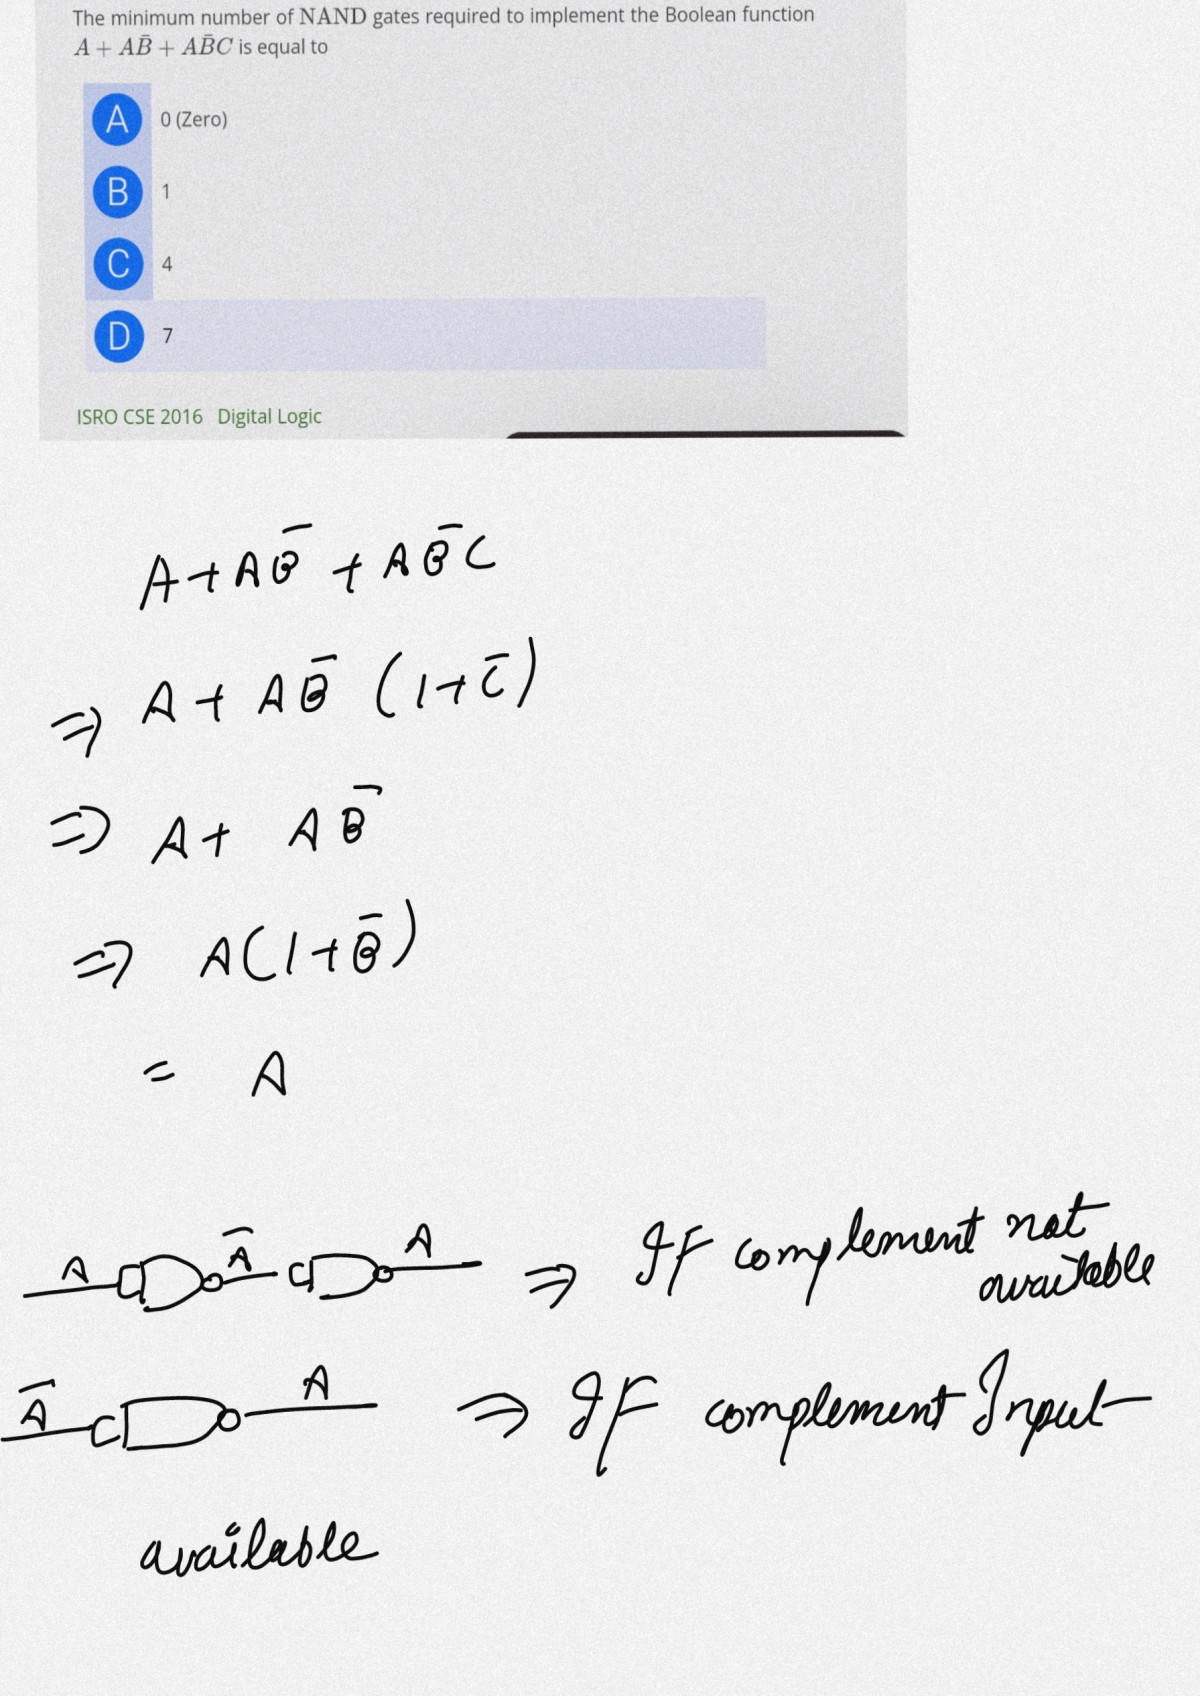 The minimum number of NAND gates required to implement the Boolean function
A + AB̄ + AB̄C is equal to
A 0 (Zero)
B 1
C 4
D 7
ISRO CSE 2016 Digital Logic
A + AB̄ + AB̄C
⇒ A + AB̄ (1+C̄)
⇒ A + AB̄
⇒ A(1+B̄)
= A
A Ā A ⇒ IF complement not
available
Ā A ⇒ IF complement Input
available